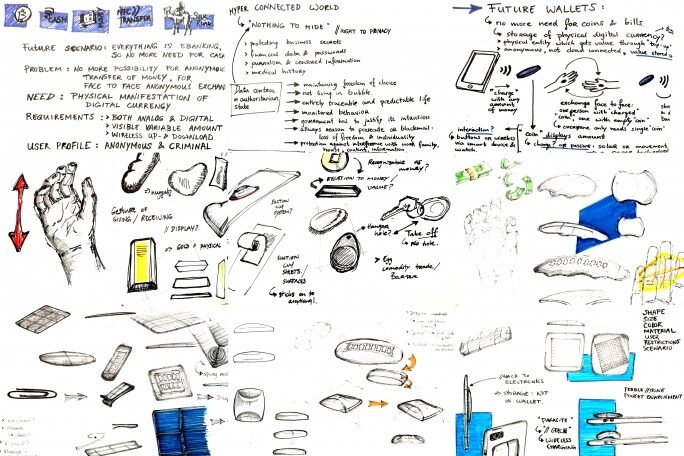 CASH
TRANSFER
FUTURE SCENARIO: EVERYTHING IS EBANKING,
SO NO MORE NEED FOR CASH
PROBLEM: NO MORE POSSIBILITY FOR ANONYMOUS
TRANSFER OF MONEY, FOR
FACE TO FACE ANONYMOUS EXCHAN
NEED: PHYSICAL MANIFESTATION OF
DIGITAL CURRENCY
REQUIREMENTS: > BOTH ANALOG & DIGITAL
> VISIBLE VARIABLE AMOUNT
> WIRELESS UP- & DOWNLOAD
USER PROFILE: ANONYMOUS & CRIMINAL
GESTURE OF
GIVING / RECEIVING
// DISPLAY?
GOLD // PHYSICAL
HYPER CONNECTED WORLD
"NOTHING TO HIDE" // RIGHT TO PRIVACY
protecting business secrets
financial data & passwords
journalism & censored information
medical history
Data control
in authoritarian
state
maintaining freedom of choice
not living in bubble
entirely traceable and predictable life
monitored behavior
government has to justify its intentions
always reason to prosecute or blackmail
loss of freedom & individuality
protection against interference with work, family,
home,
Recognisable as
money?
RELATION TO MONEY
VALUE?
SUCTION
CUP
SYSTEM?
Hanger
hole?
Take off
no hole.
SUCTION
CUP
SHEETS.
SURFACES
sticks on to
anything!
Egg
comodity trade/
FUTURE WALLETS:
no more need for coins & bills
storage of physical digital currency?
physical entity which gets value through "top-up"
anonymous, not cloud connected, value stored
"charge"
with any
amount
of money
exchange face to face:
one person with "charged"
"coin", one with empty "coin"
everyone only needs single "coin"
interaction?
buttons or wireless
via smart device &
watch.
"coin" displays amount
charge? or passive: solar or movement,
SHAPE
SIZE
COLOR
MATERIAL
USER
RESTRICTIONS
SCENARIO
SNACK TO
ELECTRONICS
STORAGE: NOT
IN WALLET.
"PARASITE"
WIRELESS
CHARGING
POCKET ENVIRONMENT